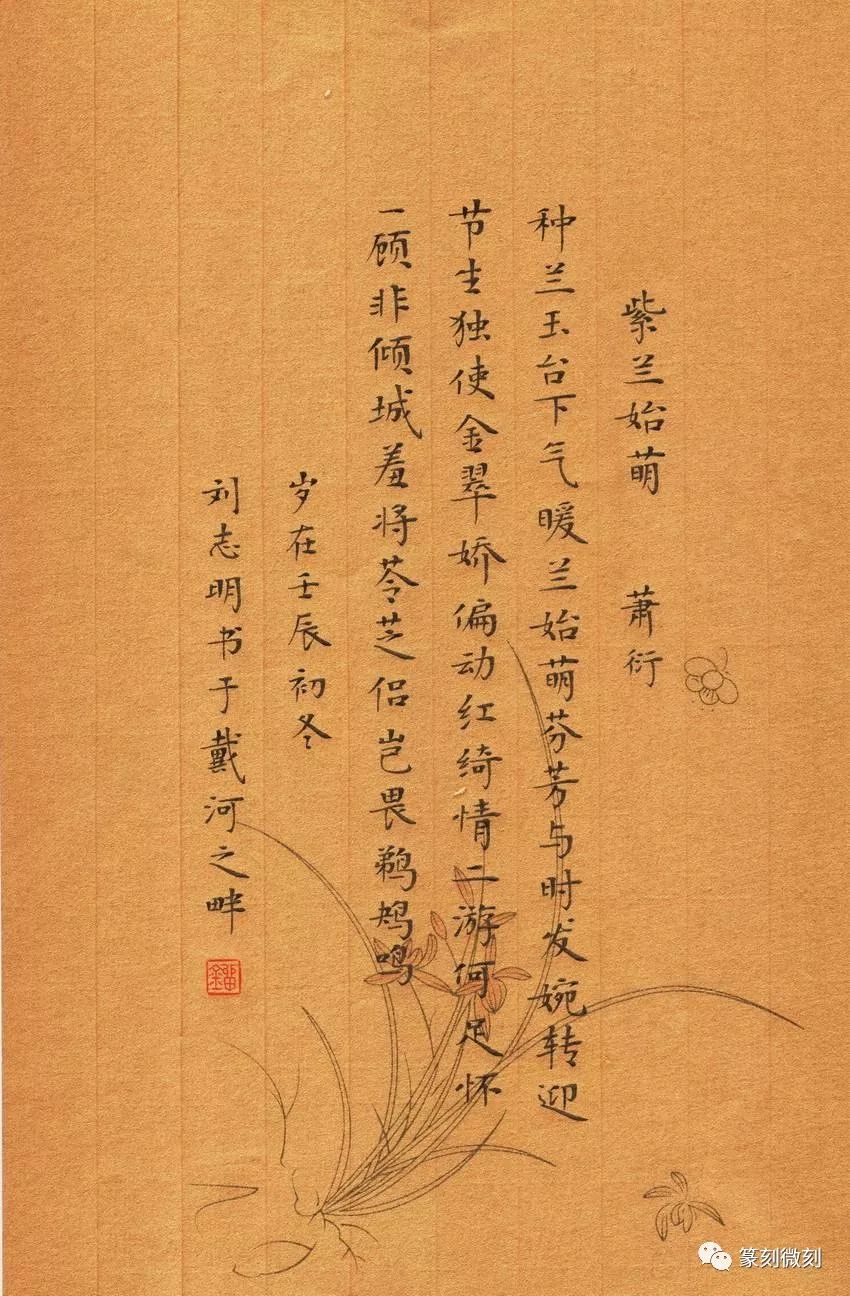 紫兰始萌 萧衍
种兰玉台下气暖兰始萌芬芳与时发婉转迎
节生独使金翠娇偏动红绮情二游何足怀
一顾非倾城羞将苓芝侣岂畏鹈鴂鸣
岁在壬辰初冬
刘志明书于戴河之畔
篆刻微刻